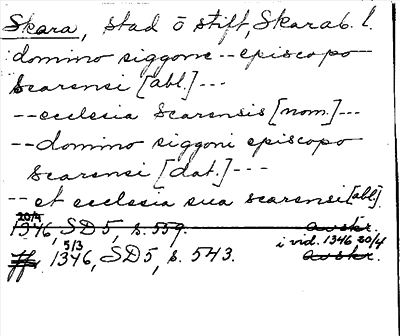 Skara, stad o stift, Skarab. l.
domino siggone -- episcopo
scarensi [abl.] ---
-- ecclesia scarensis [nom.] ---
-- domino siggoni episcopo
scarensi [dat.] ---
-- et ecclesia sua scarensi [abl.]
20/4
1346, SD 5, s. 559. avskr.
i vid. 1346 20/4
5/3
1346, SD 5, s. 543. avskr.